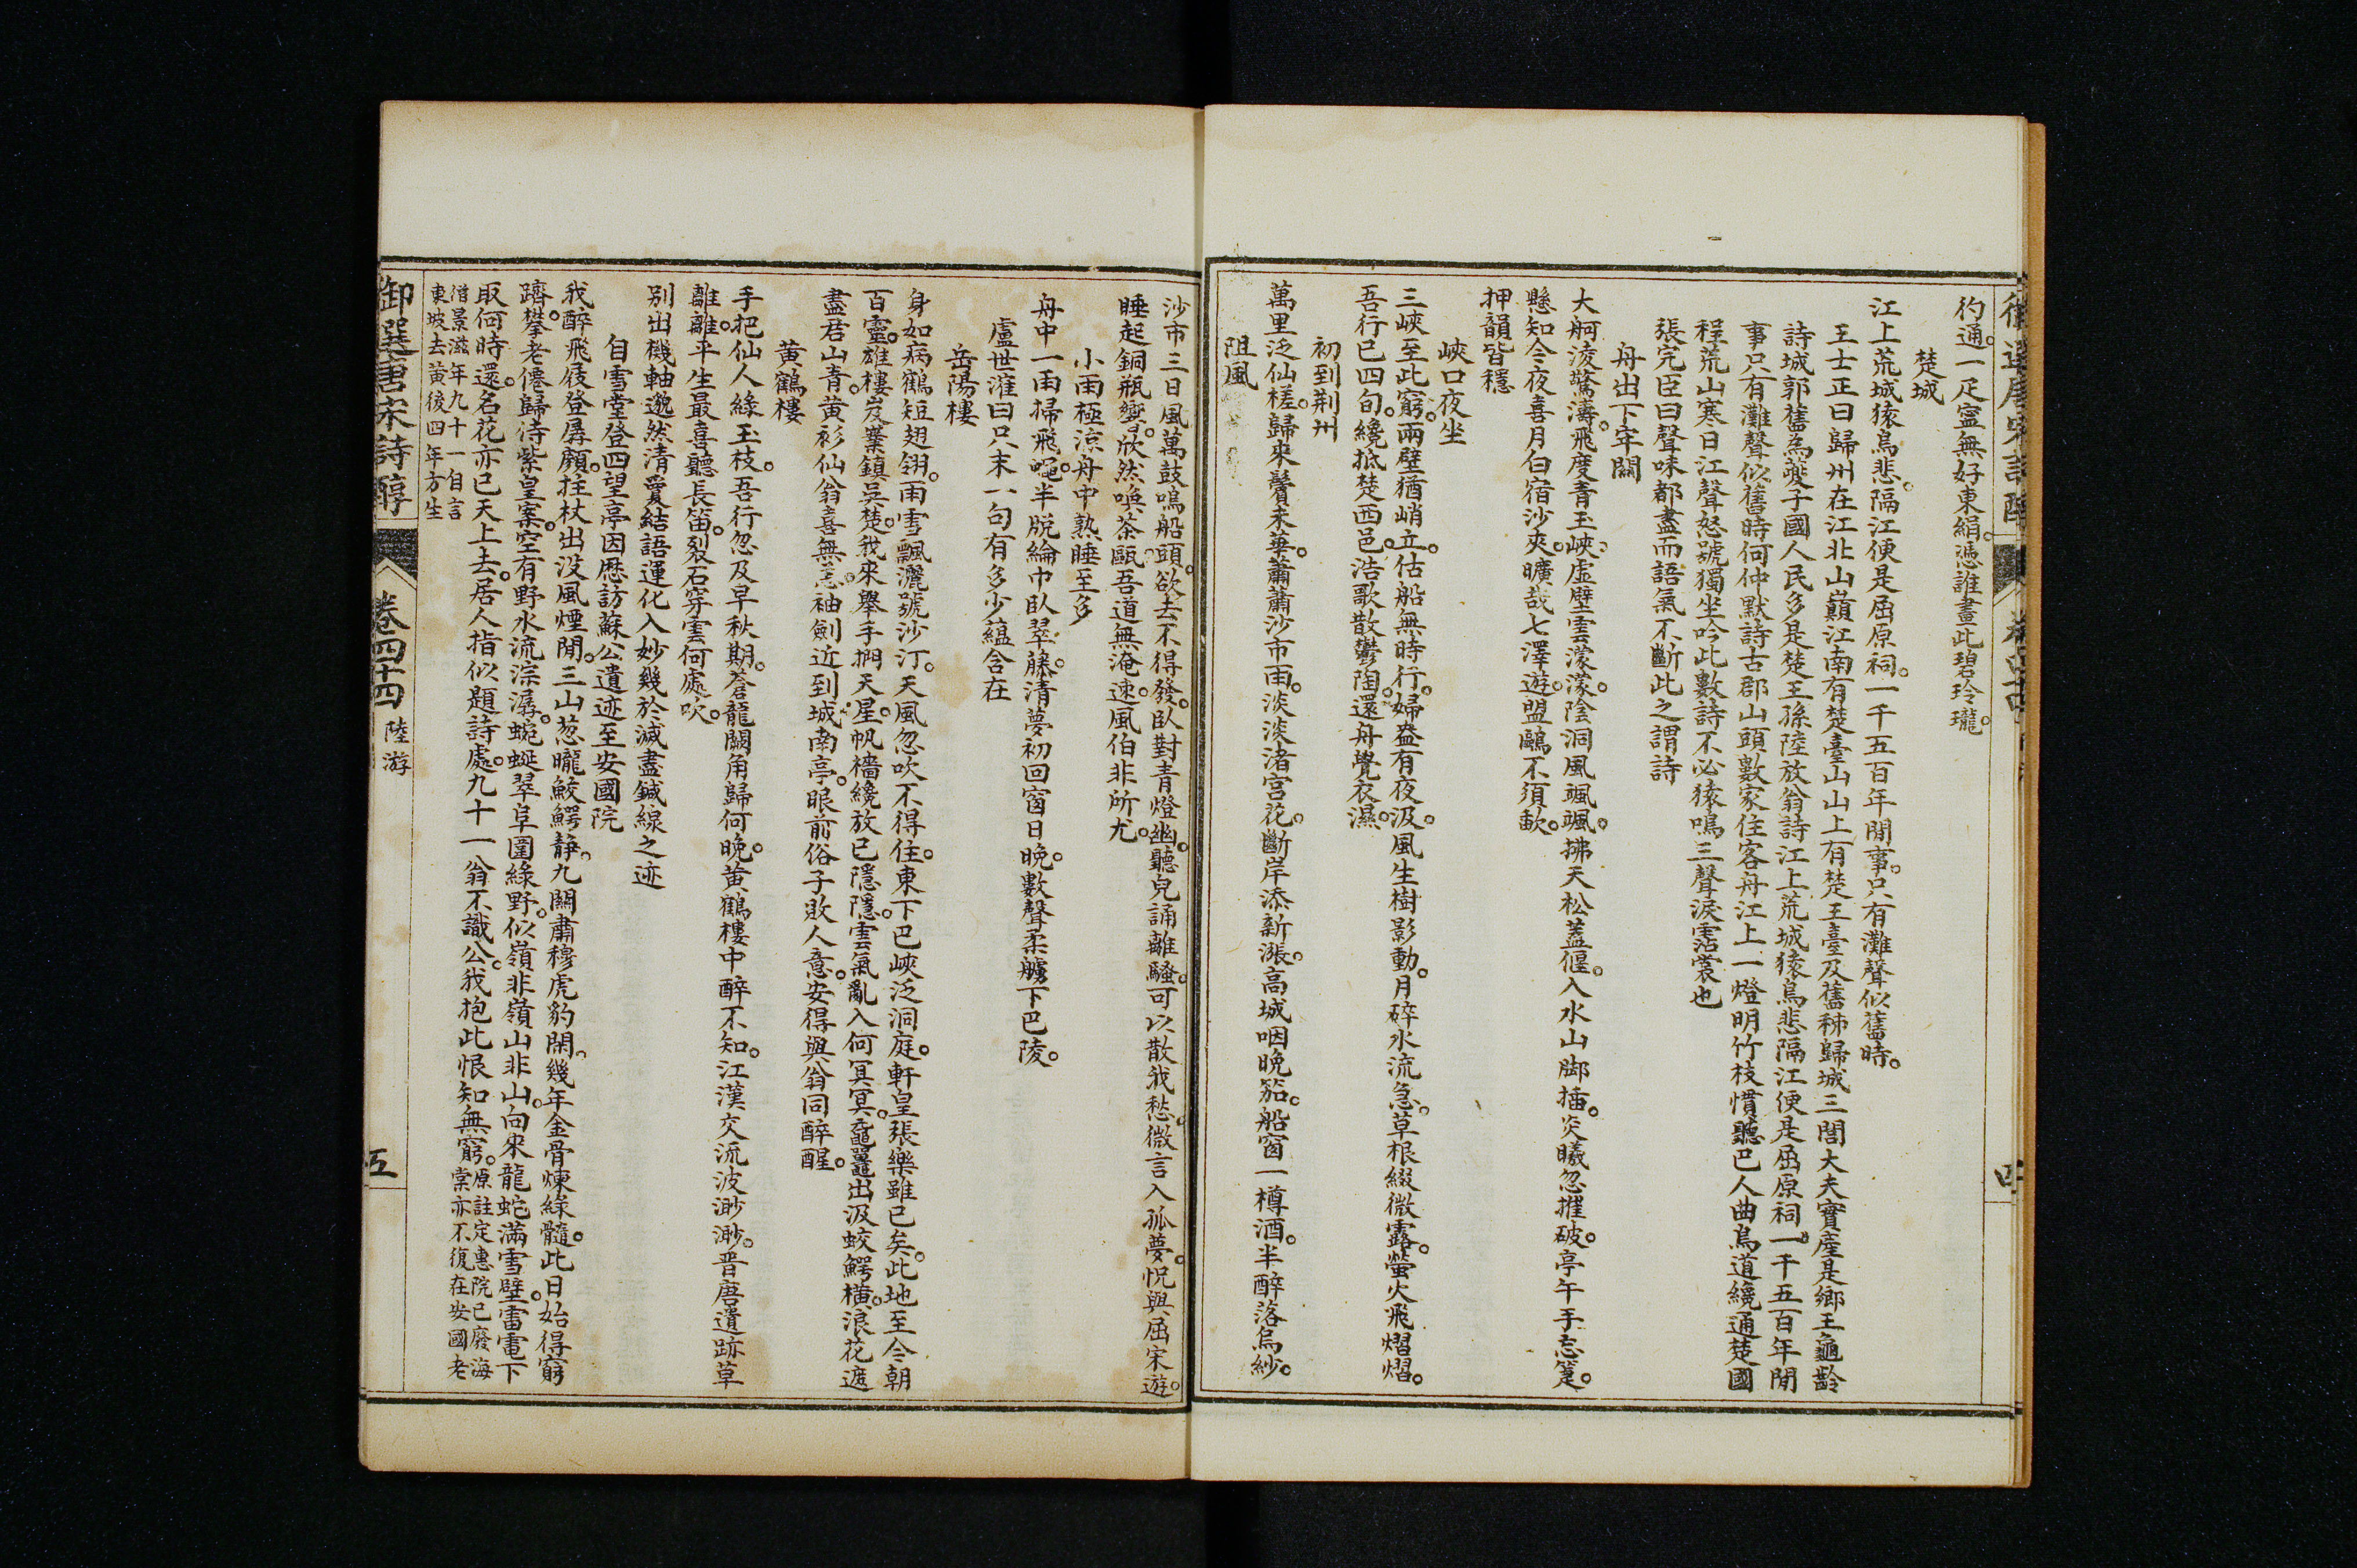 彴通一疋寧無好東絹憑誰畫此碧玲瓏
楚城
江上荒城猿鳥悲隔江便是屈原祠一千五百年間事只有灘聲似舊時
王士正曰歸州在江北山巓江南有楚臺山山上有楚王臺及舊秭歸城三閭大夫實產是鄉王龜齡
詩城郭舊為夔子國人民多是楚王孫陸放翁詩江上荒城猿鳥悲隔江便是屈原祠一千五百年間
事只有灘聲似舊時何仲默詩古郡山頭數家住客舟江上一燈明竹枝慣聽巴人曲鳥道纔通楚國
程荒山寒日江聲怒號獨坐吟此數詩不必猿鳴三聲淚霑裳也
張完臣曰聲味都盡而語氣不斷此之謂詩
舟出下牢關
大舸淩驚濤飛度青玉峽虛壁雲濛濛陰洞風颯颯拂天松蓋偃入水山脚插炎曦忽摧破亭午手忘箑
懸知今夜喜月白宿沙夾曠哉七澤遊盟鷗不須歃
押韻皆穩
峽口夜坐
三峽至此窮兩壁猶峭立估船無時行婦盎有夜汲風生樹影動月碎水流急草根綴微露螢火飛熠熠
吾行已四旬纔抵楚西邑浩歌散鬱陶還舟覺衣濕
初到荆州
萬里泛仙槎歸來鬢未華蕭蕭沙市雨淡淡渚宮花斷岸添新漲高城咽晚笳船窗一樽酒半醉落烏紗
阻風
沙市三日風萬鼓鳴船頭欲去不得發臥對青燈幽聽兒誦離騷可以散我愁微言入孤夢怳與屈宋遊
睡起銅瓶響欣然喚茶甌吾道無淹速風伯非所尤
小雨極涼舟中熟睡至夕
舟中一雨掃飛蠅半脫綸巾臥翠藤清夢初回窗日晚數聲柔艣下巴陵
盧世㴶曰只末一句有多少蘊含在
岳陽樓
身如病鶴短翅翎雨雪飄灑號沙汀天風忽吹不得住東下巴峽泛洞庭軒皇張樂雖已矣此地至今朝
百靈雄樓岌嶪鎮吳楚我來舉手捫天星帆檣纔放已隱隱雲氣亂入何冥冥黿鼉出沒蛟鰐橫浪花遮
盡君山青黃衫仙翁喜無恙袖劍近到城南亭眼前俗子敗人意安得與翁同醉醒
黃鶴樓
手把仙人綠玉枝吾行忽及早秋期蒼龍闕角歸何晚黃鶴樓中醉不知江漢交流波渺渺晋唐遺跡草
離離平生最喜聽長笛裂石穿雲何處吹
別出機軸邈然清夐結語運化入妙幾於滅盡鍼線之迹
自雪堂登四望亭因歷訪蘇公遺迹至安國院
我醉飛屐登孱顏拄杖出沒風煙間三山葱曨鮫鰐靜九關肅穆虎豹閑幾年金骨煉綠髓此日始得窮
躋攀老僊歸侍紫皇案空有野水流淙潺蜿蜒翠阜圍綠野似嶺非嶺山非山向來龍蛇滿雪壁雷電下
取何時還名花亦已天上去居人指似題詩處九十一翁不識公我抱此恨知無窮 原註定惠院已廢海
棠亦不復在安國老
僧景滋年九十一自言
東坡去黃後四年方生
御選唐宋詩醇
卷四十四
陸游
五
御選唐宋詩醇
四